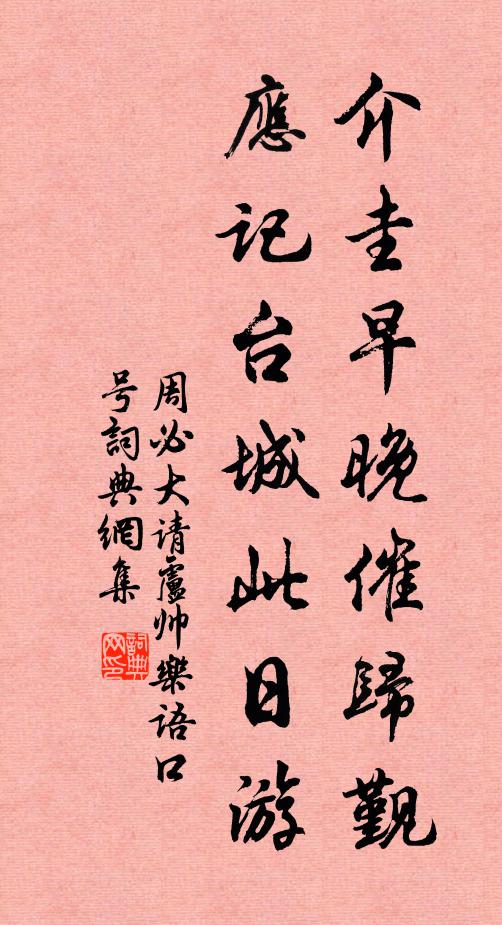 介圭早晚催歸覲
應记台城此日游
周必大请盧帅樂语口
号詞典網集
詞典网印